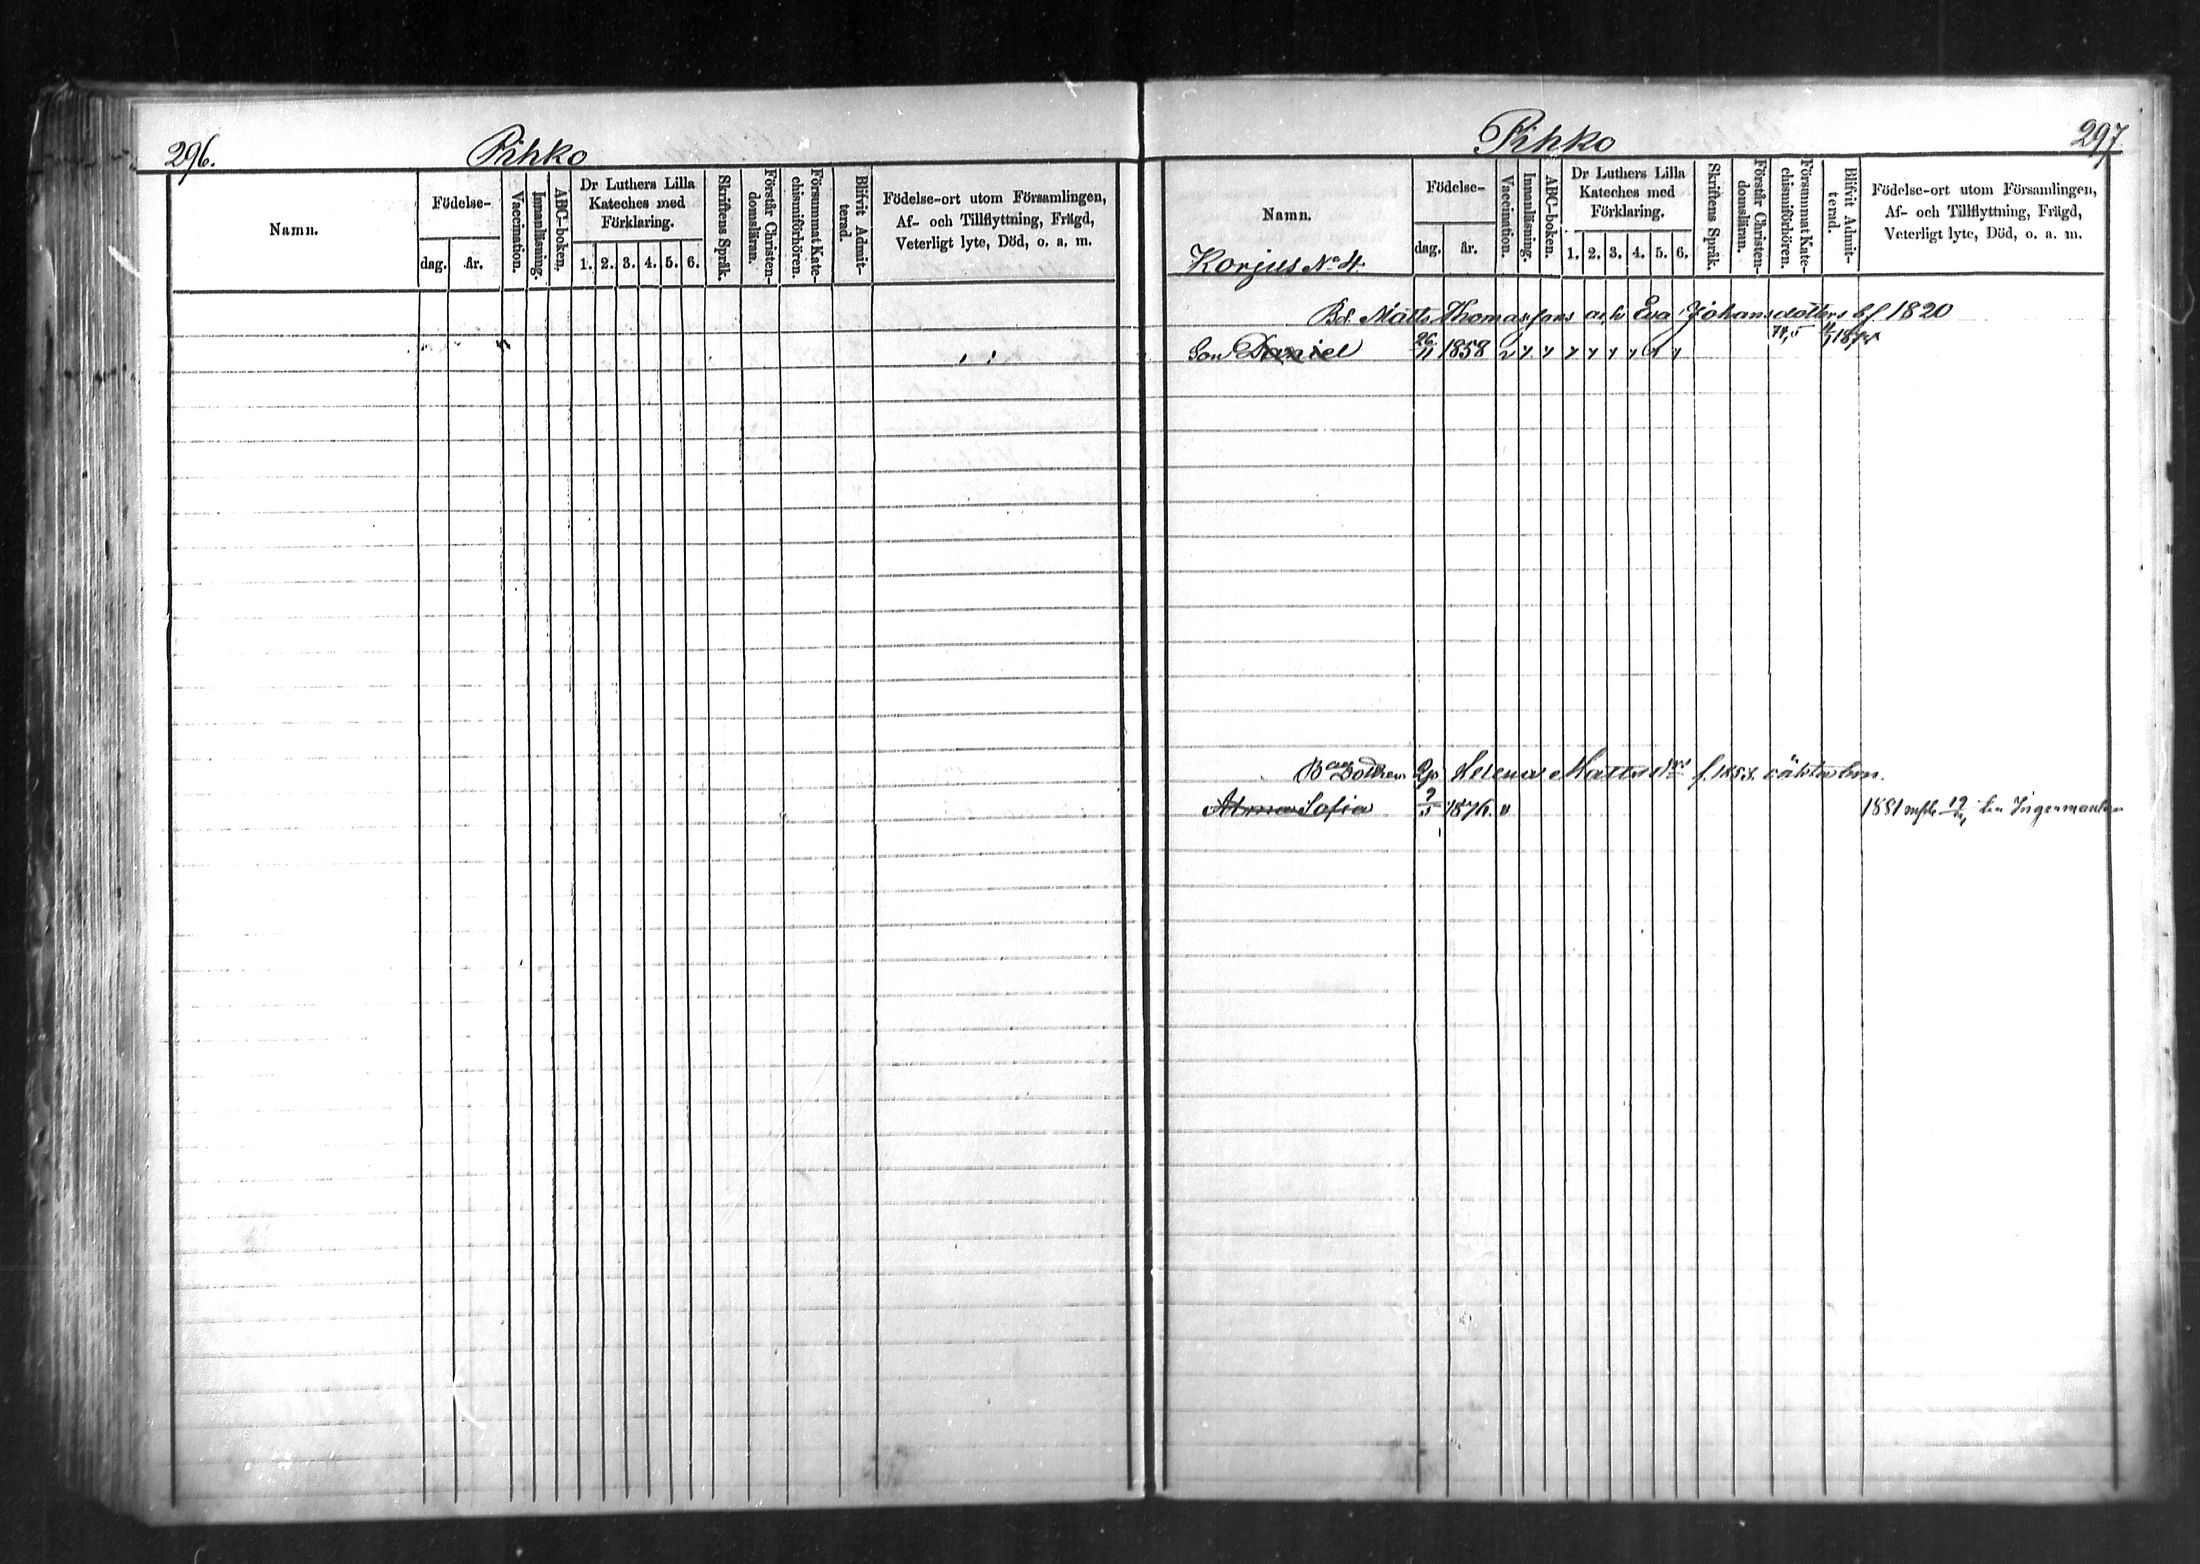 296. Pihko
Namn.
Födelse-
dag. år.
Vaccination.
Innanläsning.
ABC-boken.
Dr Luthers Lilla
Kateches med
Förklaring.
1. 2. 3. 4. 5. 6.
Skriftens Språk.
Förstår Christen-
domsläran.
Försummat Kate-
chismiförhören.
Blifvit Admit-
terad.
Födelse-ort utom Församlingen,
Af- och Tillflyttning, Frägd,
Veterligt lyte, Död, o. a. m.
Pihko 297
Namn.
Korjus No 4
Födelse-
dag. år.
Vaccination.
Innanläsning.
ABC-boken.
Dr Luthers Lilla
Kateches med
Förklaring.
1. 2. 3. 4. 5. 6.
Skriftens Språk.
Förstår Christen-
domsläran.
Försummat Kate-
chismiförhören.
Blifvit Admit-
terad.
Födelse-ort utom Församlingen,
Af- och Tillflyttning, Frägd,
Veterligt lyte, Död, o. a. m.
Bd. Matts Thomassons och Eva Johansdotters 1820
Son Daniel 26/11 1858
Dottren Helena Matts f. 1853. oäkta barn.
Alma Sofia 9/5 1876. v 1881 Ingermanland